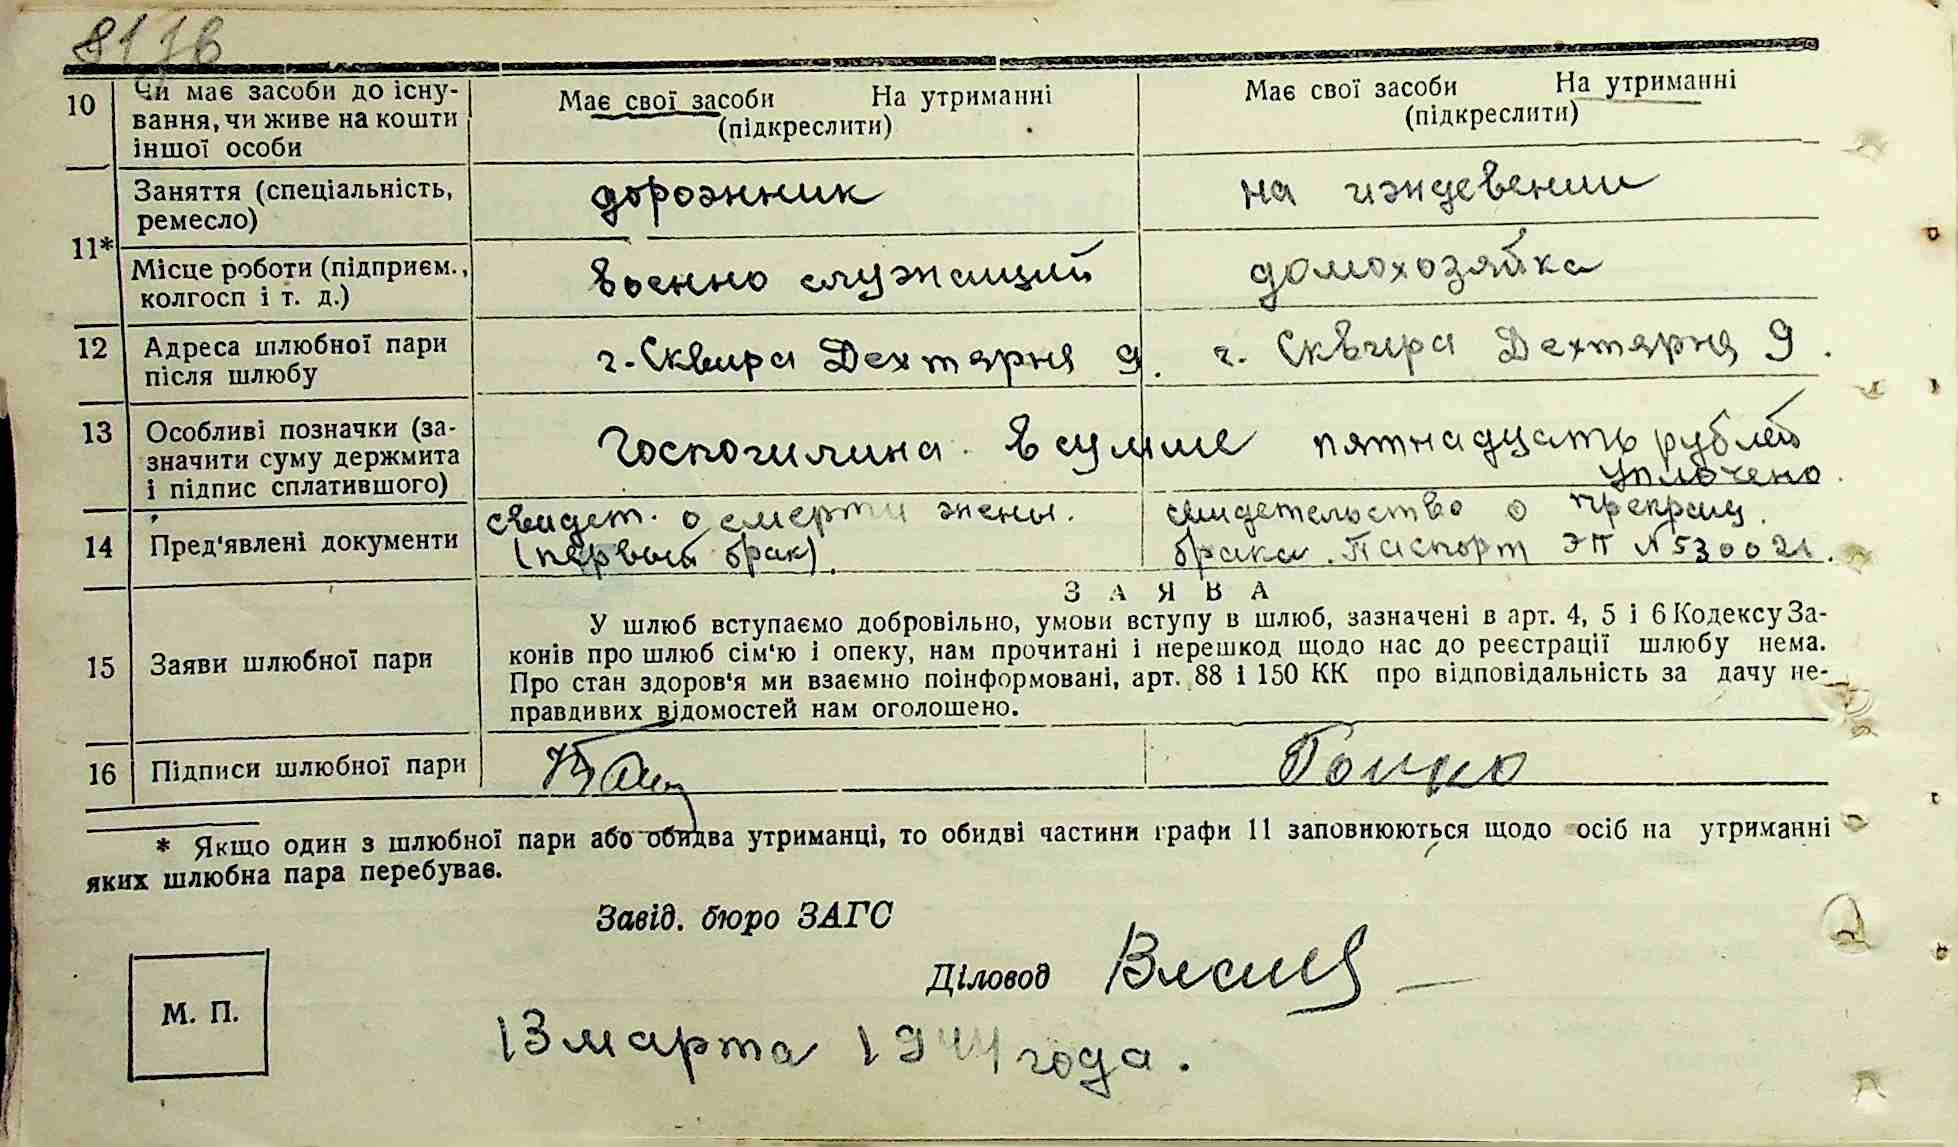 10 Чи має засоби до існу-
вання, чи живе на кошти
іншої особи
Має свої засоби На утриманні
(підкреслити)
Має свої засоби На утриманні
(підкреслити)
11*
Заняття (спеціальність,
ремесло)
дорожник
на иждевении
Місце роботи (підприєм.,
колгосп і т. д.)
военно служащий
домохозяйка
12 Адреса шлюбної пари
після шлюбу
г. Сквира Дехтярня 9.
г. Сквира Дехтярня 9.
13 Особливі позначки (за-
значити суму держмита
і підпис сплатившого)
Госпошлина в сумме пятнадцать рублей
уплочено.
14 Пред'явлені документи
свидет. о смерти жены.
(первый брак).
свидетельство о прекращ.
брака. Паспорт ЭП №530021.
15 Заяви шлюбної пари
ЗАЯВА
У шлюб вступаємо добровільно, умови вступу в шлюб, зазначені в арт. 4, 5 і 6 Кодексу За-
конів про шлюб сім'ю і опеку, нам прочитані і перешкод щодо нас до реєстрації шлюбу нема.
Про стан здоров'я ми взаємно поінформовані, арт. 88 і 150 КК про відповідальність за дачу не-
правдивих відомостей нам оголошено.
16 Підписи шлюбної пари
* Якщо один з шлюбної пари або обидва утриманці, то обидві частини графи 11 заповнюються щодо осіб на утриманні
яких шлюбна пара перебуває.
Завід. бюро ЗАГС
Діловод
М. П.
13 марта 1944 года.